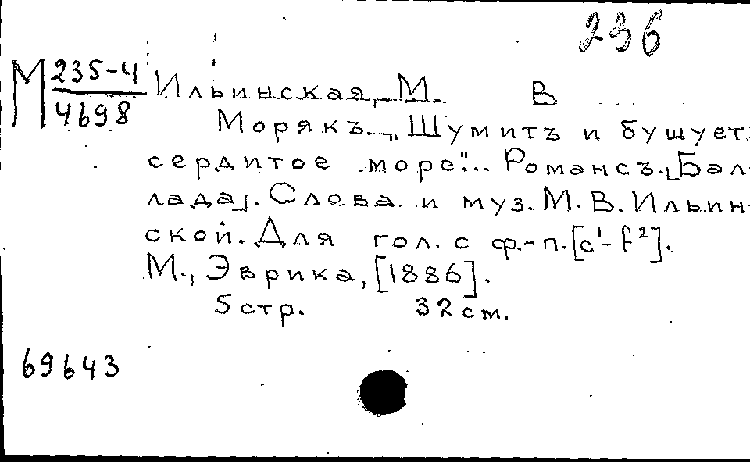 236
М 235-4
4698
Ильинская, М. В
Морякъ. „Шумитъ и бушует
сердитое море"... Романсъ. [Бал-
лада]. Слова и муз. М. В. Ильин-
ской. Для гол. с ф.-п. [c¹-f²].
М., Эврика, [1886].
5 стр. 32 см.
69643